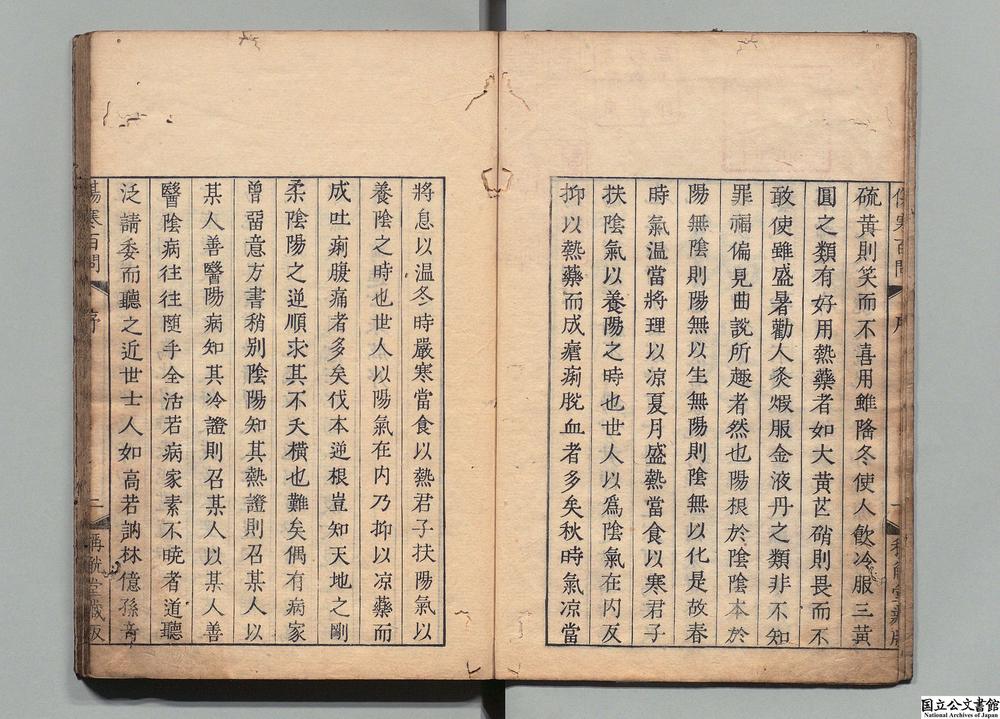 傷寒百問 序 一
硫黃則笑而不喜用雖隆冬使人飲冷服三黃
圓之類有好用熱藥者如大黃芒硝則畏而不
敢使雖盛暑勸人灸煆服金液丹之類非不知
罪福偏見曲說所趣者然也陽根於陰陰本於
陽無陰則陽無以生無陽則陰無以化是故春
時氣溫當將理以凉夏月盛熱當食以寒君子
扶陰氣以養陽之時也世人以爲陰氣在內反
抑以熱藥而成瘧痢脫血者多矣秋時氣凉當
將息以温冬時嚴寒當食以熱君子扶陽氣以
養陰之時也世人以陽氣在内乃抑以凉藥而
成吐痢腹痛者多矣伐本逆根豈知天地之剛
柔陰陽之逆順求其不夭橫也難矣偶有病家
曾留意方書稍别陰陽知其熱證則召某人以
某人善醫陽病知其冷證則召某人以某人善
醫陰病往往随手全活若病家素不曉者道聽
泛請委而聽之近世士人如高若訥林億孫竒
傷寒百問 序 二 稱觥堂藏板
国立公文書館
National Archives of Japan